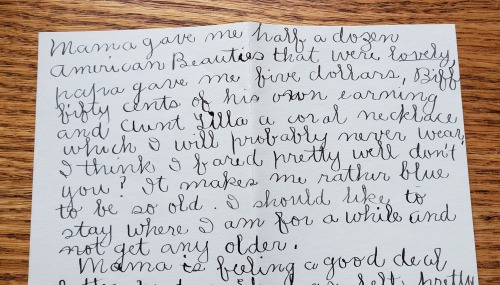 Mama gave me half a dozen
American Beauties that were lovely,
papa gave me five dollars, Biff
fifty cents of his own earning
and Aunt Lilla a coral necklace
which I will probably never wear.
I think I fared pretty well don't
you? It makes me rather blue
to be so old. I should like to
stay where I am for a while and
not get any older.
Mama is feeling a good deal
felt pretty